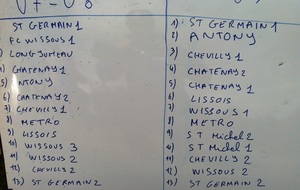 ST GERMAIN 1
FC WISSOUS 1
LONGJUMEAU
CHATENAY 1
5) ANTONY
6) CHATENAY 2
7) CHEVILLY 1
8) METRO
9) LISSOIS
10) WISSOUS 3
11) WISSOUS 2
12) CHEVILLY 2
13) ST GERMAIN 2
1) ST GERMAIN 1
2) ANTONY
3) CHEVILLY 1
4) CHATENAY 2
5) CHATENAY 1
6) LISSOIS
7) WISSOUS 1
8) METRO
9) ST Michel 2
10) ST Michel 1
11) CHEVILLY 2
12) WISSOUS 2
13) ST GERMAIN 2